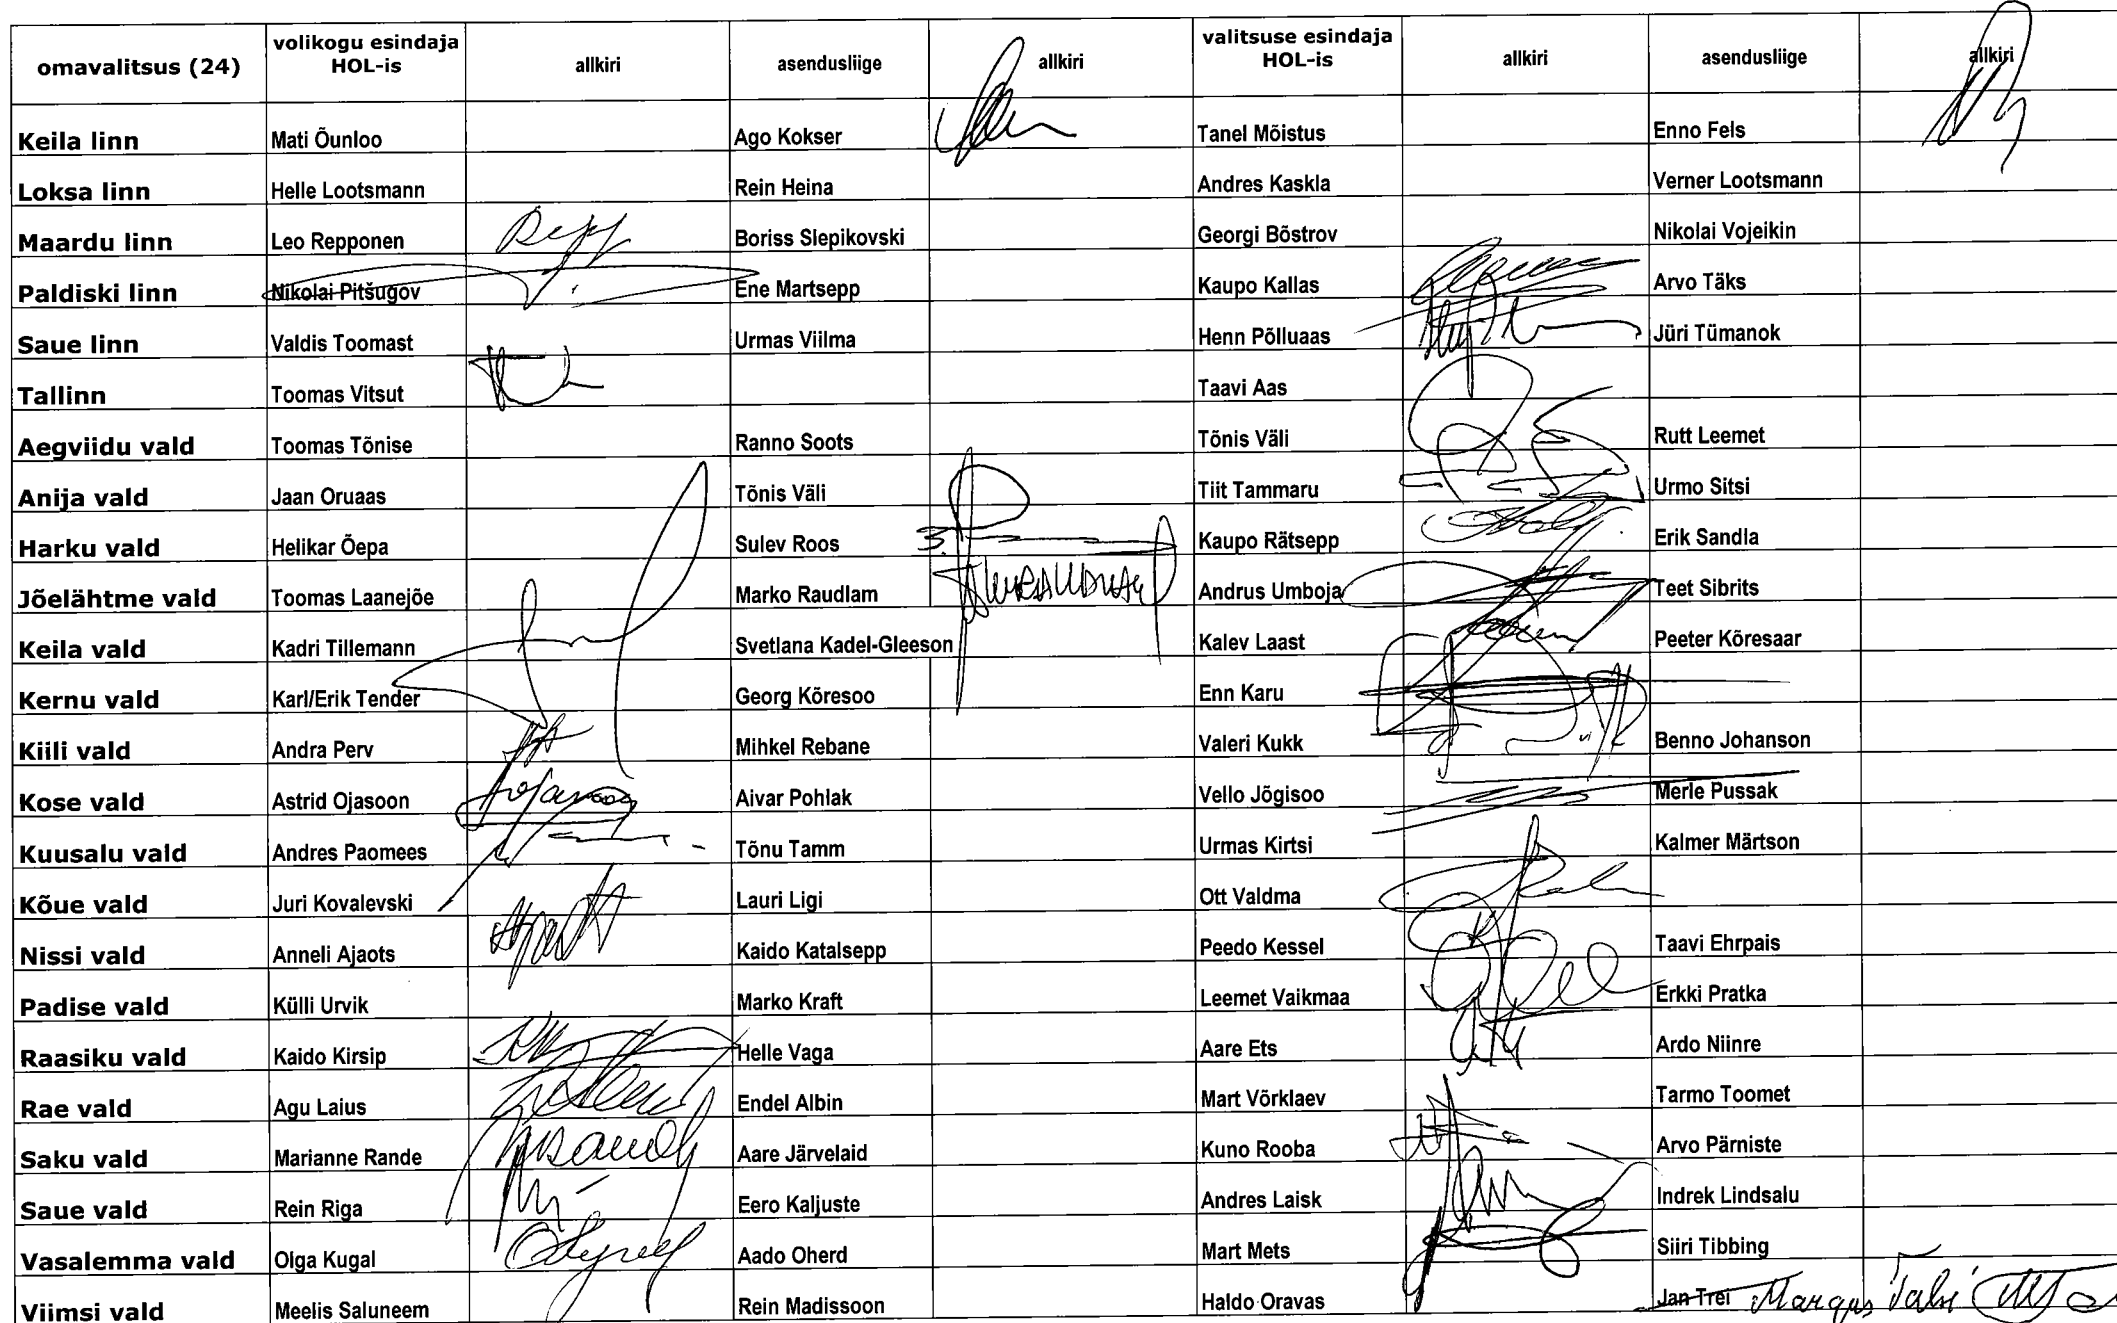 omavalitsus (24) volikogu esindaja HOL-is allkiri asendusliige allkiri valitsuse esindaja HOL-is allkiri asendusliige allkiri
Keila linn Mati Õunloo Ago Kokser Tanel Mõistus Enno Fels
Loksa linn Helle Lootsmann Rein Heina Andres Kaskla Verner Lootsmann
Maardu linn Leo Repponen Boriss Slepikovski Georgi Bõstrov Nikolai Vojeikin
Paldiski linn Nikolai Pitšugov Ene Martsepp Kaupo Kallas Arvo Täks
Saue linn Valdis Toomast Urmas Viilma Henn Põlluaas Jüri Tümanok
Tallinn Toomas Vitsut Taavi Aas
Aegviidu vald Toomas Tõnise Ranno Soots Tõnis Väli Rutt Leemet
Anija vald Jaan Oruaas Tõnis Väli Tiit Tammaru Urmo Sitsi
Harku vald Helikar Õepa Sulev Roos Kaupo Rätsepp Erik Sandla
Jõelähtme vald Toomas Laanejõe Marko Raudlam Andrus Umboja Teet Sibrits
Keila vald Kadri Tillemann Svetlana Kadel-Gleeson Kalev Laast Peeter Kõresaar
Kernu vald Karl/Erik Tender Georg Kõresoo Enn Karu
Kiili vald Andra Perv Mihkel Rebane Valeri Kukk Benno Johanson
Kose vald Astrid Ojasoon Aivar Pohlak Vello Jõgisoo Merle Pussak
Kuusalu vald Andres Paomees Tõnu Tamm Urmas Kirtsi Kalmer Märtson
Kõue vald Juri Kovalevski Lauri Ligi Ott Valdma
Nissi vald Anneli Ajaots Kaido Katalsepp Peedo Kessel Taavi Ehrpais
Padise vald Külli Urvik Marko Kraft Leemet Vaikmaa Erkki Pratka
Raasiku vald Kaido Kirsip Helle Vaga Aare Ets Ardo Niinre
Rae vald Agu Laius Endel Albin Mart Võrklaev Tarmo Toomet
Saku vald Marianne Rande Aare Järvelaid Kuno Rooba Arvo Pärniste
Saue vald Rein Riga Eero Kaljuste Andres Laisk Indrek Lindsalu
Vasalemma vald Olga Kugal Aado Oherd Mart Mets Siiri Tibbing
Viimsi vald Meelis Saluneem Rein Madissoon Haldo Oravas Jan Trei Margus Talsi